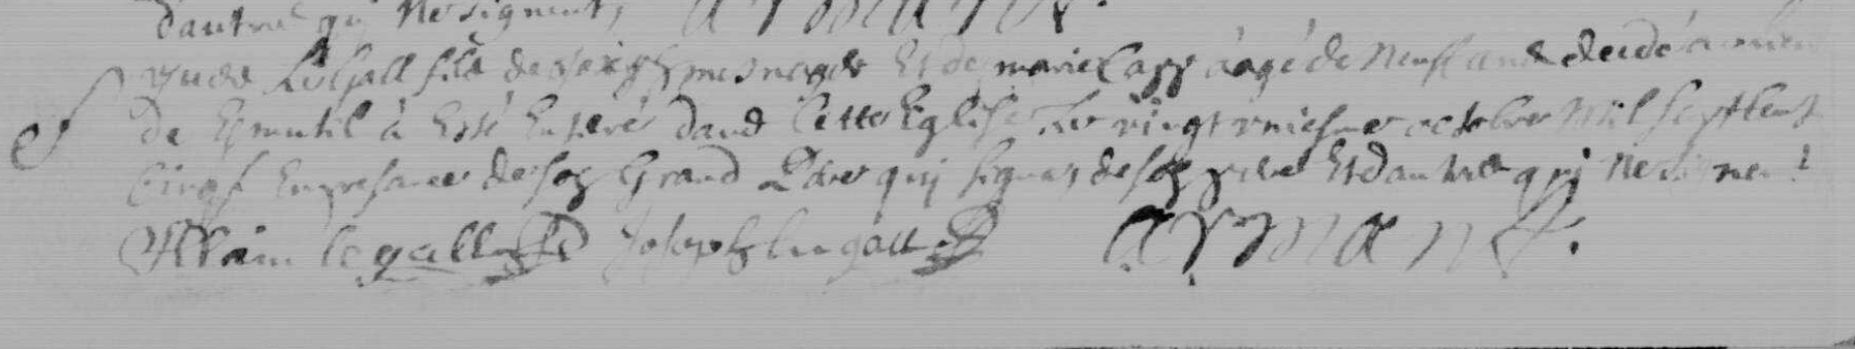 dautre qui ne signent, armant.
yues Le gall fils de joseph mesnager Et de marie Capp aagé de neuf ans decedé au lieu
de à Esté Enterré dans Cette Eglise Le vingt vniesme octobre Mil sept Cent
Cinq En presence de son Grand Pere qui signe, de son pere Et dautres qui ne signent
Allain le gall Joseph le gall armant.